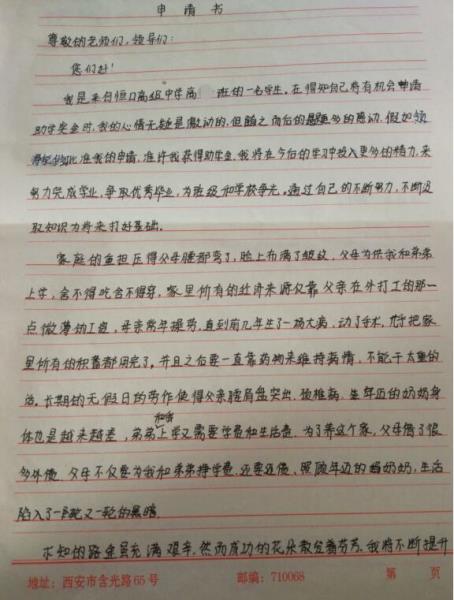 申请书
尊敬的老师们，领导们：
您们好！
我是来自恒口高级中学高 班的一名学生。在得知自己将有机会申请
助学奖金时，我的心情无疑是激动的，但随之而后的是更多的感动。假如领
导能够批准我的申请，准许我获得助学金，我将在今后的学习中投入更多的精力，来
努力完成学业，争取优秀毕业，为班级和学校争光。通过自己的不断努力，不断汲
取知识为将来打好基础。
家庭的重担压得父母腰都弯了，脸上布满了皱纹，父母为供我和弟弟
上学，舍不得吃舍不得穿，家里所有的经济来源仅靠父亲在外打工的那一
点微薄的工资，母亲常年操劳，直到前几年生了一场大病，动了手术，将把家
里所有的积蓄都用完了。并且之后要一直靠药物来维持病情，不能干太重的
活。长期的无假日的劳作使得父亲腰间盘突出、颈椎病，年迈的奶奶身
体也是越来越差，弟弟和我上学又需要学费和生活费，为了养这个家，父母借了很
多外债，父母不仅要为我和弟弟挣学费，还要还债、照顾年迈的奶奶，生活
陷入了一轮又一轮的黑暗。
求知的路途虽充满艰辛，然而成功的花朵散发着芬芳，我将不断提升
地址：西安市含光路65号 邮编：710068 第 页